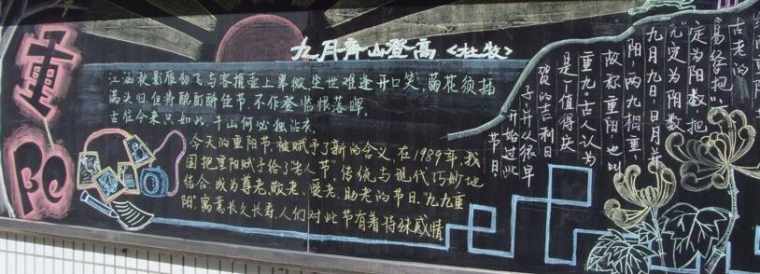 重阳
九月齐山登高<杜牧>
江涵秋影雁初飞,与客携壶上翠微.尘世难逢开口笑,菊花须插
满头归.但将酩酊酬佳节,不作登临恨落晖.
古往今来只如此,牛山何必独沾衣.
今天的重阳节,被赋予了新的含义,在1989年,我
国把重阳赋予给了老人节,传统与现代巧妙地
结合,成为尊老,敬老,爱老,助老的节日.九九重
阳"寓意长久长寿,人们对此节有着特殊感情
古老的
易经把
定为阳数,把
九定为阳数
九月九日,日月并
阳,两九相重,
故称重阳,也叫
重九古人认为
是个值得庆
贺的吉利日
子,并从很早
开始过此
节日.